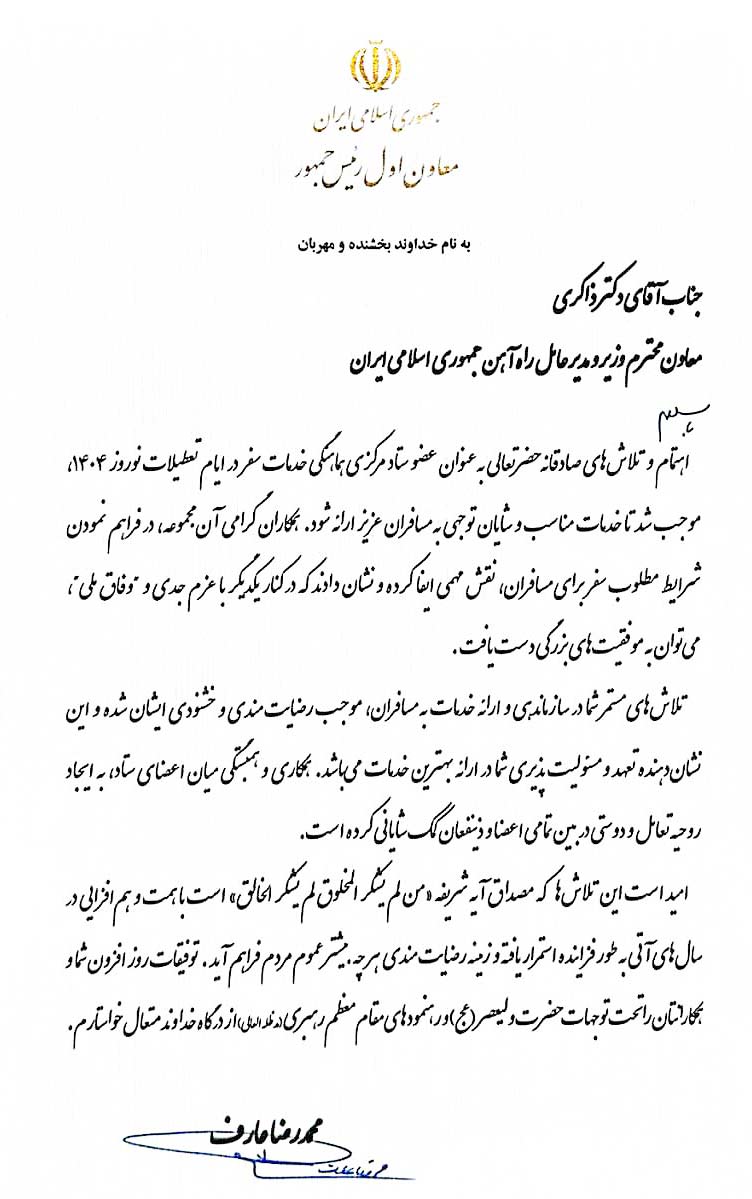 جمهوری اسلامی ایران
معاون اول رئیس جمهور
به نام خداوند بخشنده و مهربان
جناب آقای دکتر ذاکری
معاون محترم وزیر و مدیرعامل راه آهن جمهوری اسلامی ایران
با سلام
اهتمام و تلاش‌های صادقانه حضرتعالی به عنوان عضو ستاد مرکزی هماهنگی خدمات سفر در ایام تعطیلات نوروز ۱۴۰۴،
موجب شد تا خدمات مناسب و شایان توجهی به مسافران عزیز ارائه شود. همکاران گرامی آن مجموعه، در فراهم نمودن
شرایط مطلوب سفر برای مسافران، نقش مهمی ایفا کرده و نشان دادند که در کنار یکدیگر با عزم جدی و "وفاق ملی"،
می‌توان به موفقیت‌های بزرگی دست یافت.
تلاش‌های مستمر شما در سازماندهی و ارائه خدمات به مسافران، موجب رضایت مندی و خشنودی ایشان شده و این
نشان‌دهنده تعهد و مسئولیت پذیری شما در ارائه بهترین خدمات می‌باشد. همکاری و همبستگی میان اعضای ستاد، به ایجاد
روحیه تعامل و دوستی در بین تمامی اعضا و ذینفعان کمک شایانی کرده است.
امید است این تلاش‌ها که مصداق آیه شریفه «من لم یشکر المخلوق لم یشکر الخالق» است با همت و هم افزایی در
سال‌های آتی به طور فزاینده استمرار یافته و زمینه رضایت مندی هرچه بیشتر عموم مردم فراهم آید. توفیقات روز افزون شما و
همکارانتان را تحت توجهات حضرت ولیعصر(عج) و رهنمودهای مقام معظم رهبری(مدظله العالی) از درگاه خداوند متعال خواستارم.
محمدرضا عارف